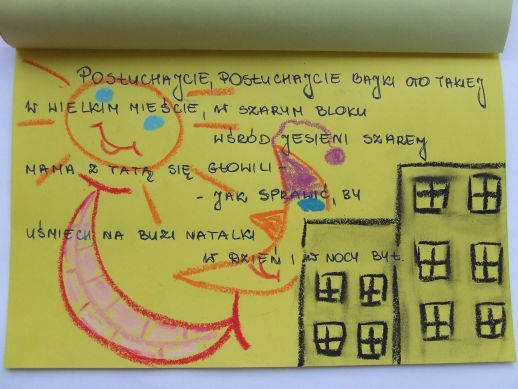 POSŁUCHAJCIE, POSŁUCHAJCIE BAJKI OTO TAKIEJ
W WIELKIM MIEŚCIE, W SZARYM BLOKU
WŚRÓD JESIENI SZAREJ
MAMA Z TATĄ SIĘ GŁOWILI -
- JAK SPRAWIĆ, BY
UŚMIECH NA BUZI NATALKI
W DZIEŃ I W NOCY BYŁ.